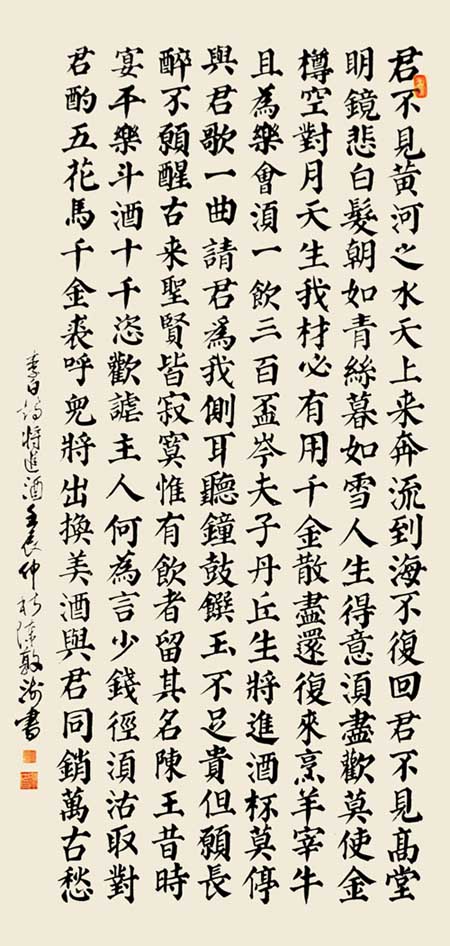 君不見黃河之水天上来奔流到海不復回君不見髙堂
明鏡悲白髮朝如青絲暮如雪人生得意湏盡歡莫使金
樽空對月天生我材必有用千金散盡還復來烹羊宰牛
且為樂會湏一飲三百盃岑夫子丹丘生將進酒杯莫停
與君歌一曲請君為我側耳聽鐘鼓饌玉不足貴但願長
醉不願醒古来聖賢皆寂寞惟有飲者留其名陳王昔時
宴平樂斗酒十千恣歡謔主人何為言少錢徑湏沽取對
君酌五花馬千金裘呼兒將出換美酒與君同銷萬古愁
李白詩將進酒壬辰仲秋陳敦書